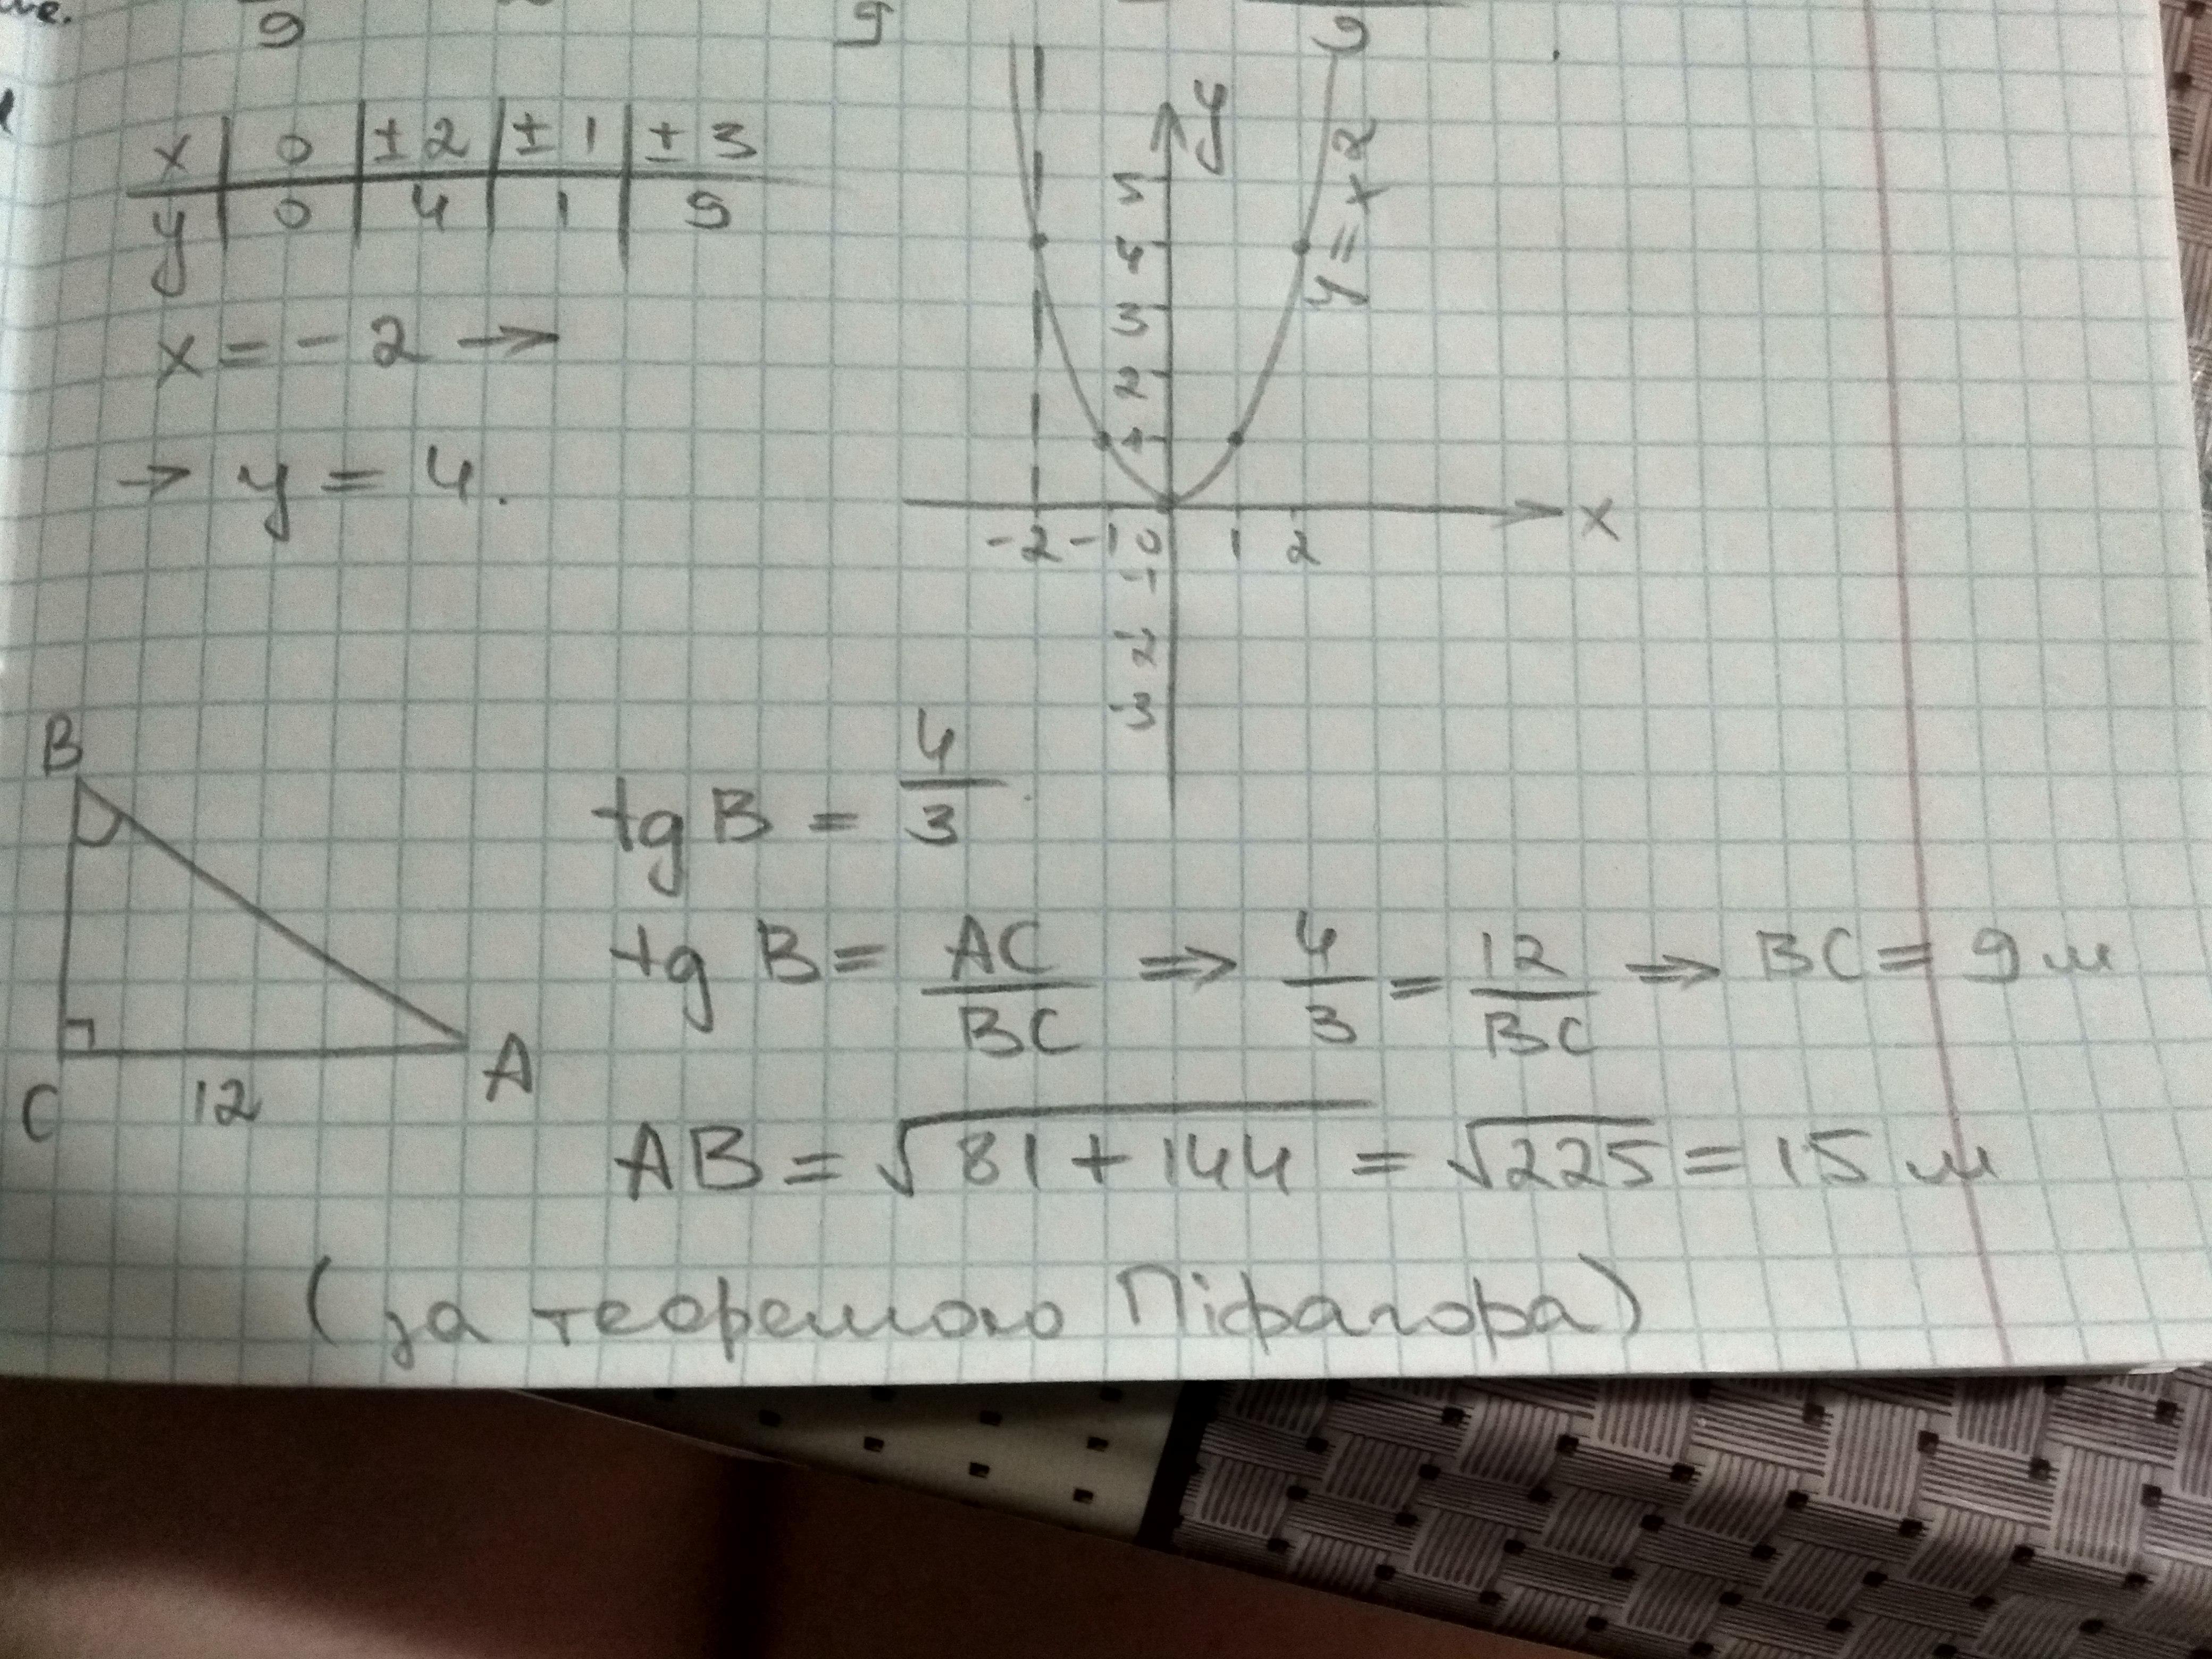 x | 0 | ±2 | ±1 | ±3
y | 0 | 4 | 1 | 9
x = -2 →
→ y = 4.
y
5
4
3
2
1
-2 -1 0 1 2 x
-1
-2
-3
y = x²
B
C
12
A
tg B = 4/3
tg B = AC/BC ⇒ 4/3 = 12/BC ⇒ BC = 9 м
AB = √81 + 144 = √225 = 15 м
(за теоремою Піфагора)